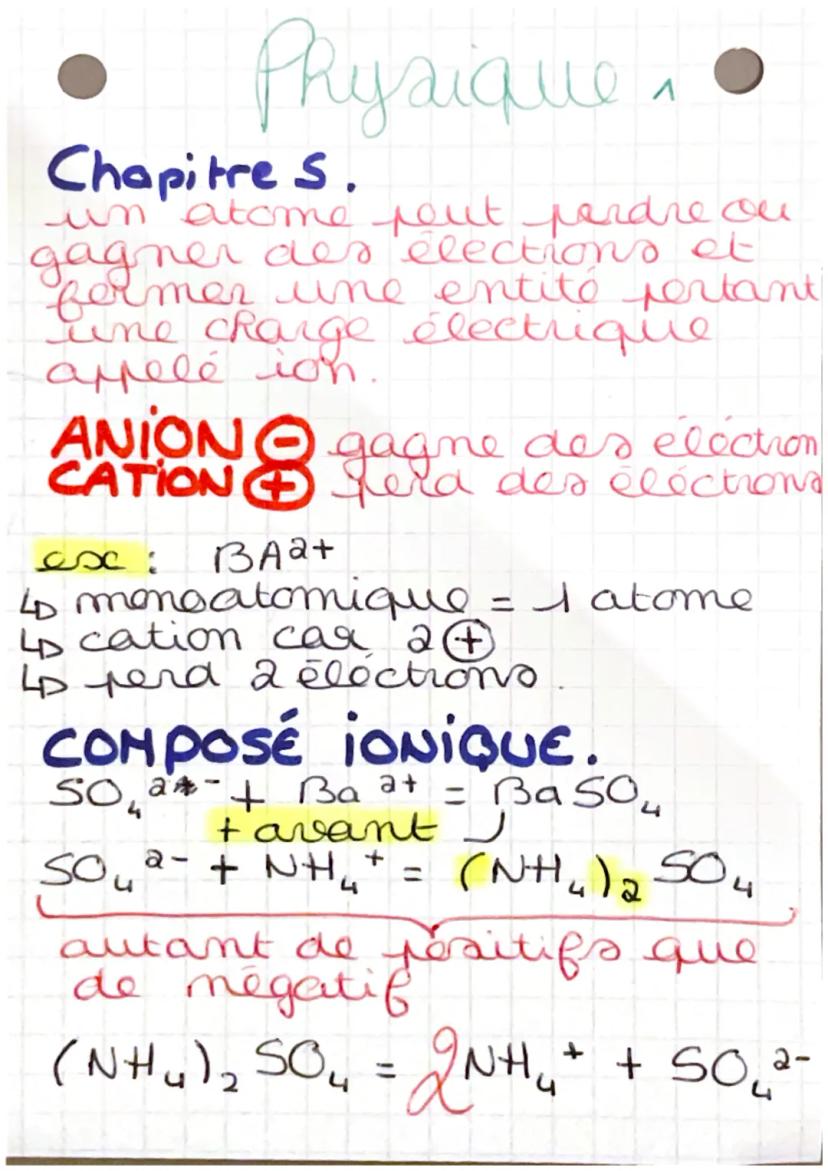 Physique 1
Chapitre 5.
un atome peut perdre ou
gagner des électrons et
former une entité portant
une charge électrique
appelé ion.
ANION ⊖ gagne des éléctron
CATION ⊕ perd des éléctrons
ex : BA²⁺
↳ monoatomique = 1 atome
↳ cation car 2 ⊕
↳ perd 2 éléctrons.
COMPOSÉ IONIQUE.
SO₄²⁻ + Ba²⁺ = BaSO₄
+ avant
SO₄²⁻ + NH₄⁺ = (NH₄)₂ SO₄
autant de positifs que
de négatif
(NH₄)₂ SO₄ = 2NH₄⁺ + SO₄²⁻